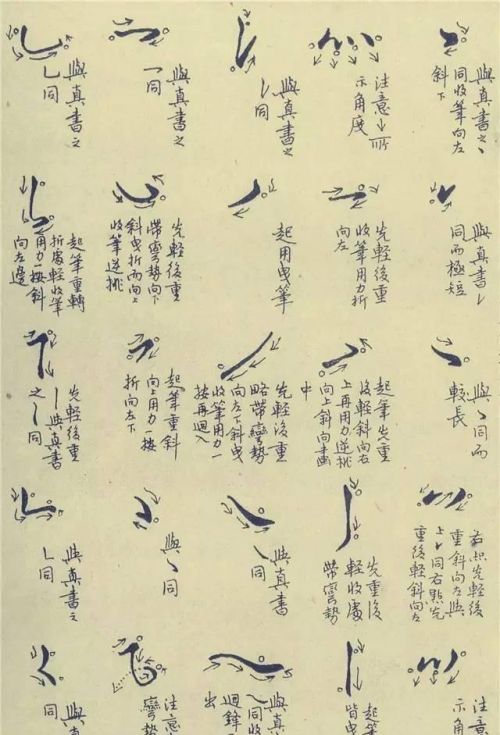 與真書之丶
同收筆向左
斜下
注意↓所
示角度
與真書之
丿同
與真書之
一同
與真書之
乚同
與真書
同而極短
先輕後重
收筆用力折
向左
起用曳筆
先輕後重
帶彎勢向下
斜曳折而向上
收筆逆挑
起筆重轉
折處輕收筆
用力一按斜
向左邊
與丶同而
較長
起筆先重
後輕斜向右
上再用力逆挑
向上斜向畫
中
先輕後重
略帶彎勢
向左下斜曳
收筆用力一
按再迴入
起筆重斜
向上用力一按
折向左下
先輕後重
丨與真書
之丨同
先輕後
重斜向左與
上同右點先
重後輕斜向左
先重後
輕收處
帶彎勢
與真書
乀同
與丶同
與真書之
乚同
注意
示角
起筆
皆曳
與真
乀同收
迴鋒
出
注意
彎勢
與真
同